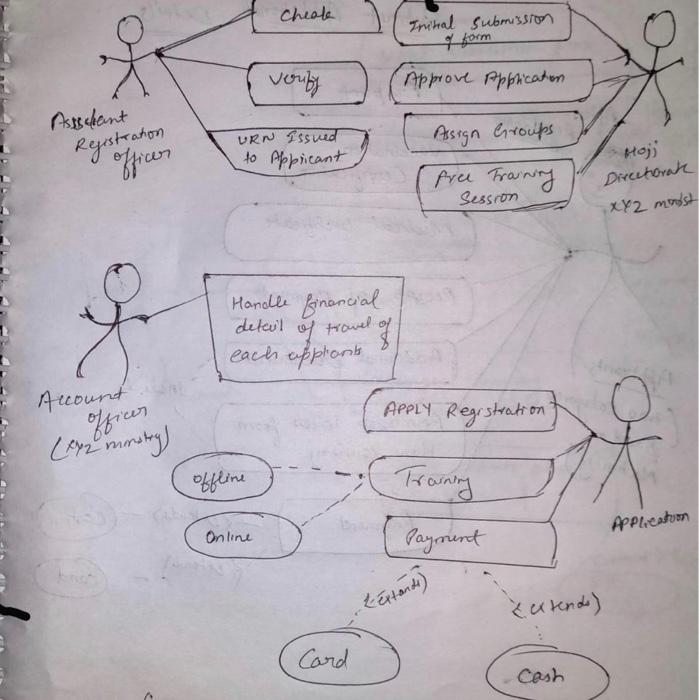 Cheak
Initial Submission
of form
Verify
Approve Application
Assistant
Registration
officer
URN Issued
to Appicant
Assign Groups
Free Training
Session
Hojj
Directorate
XYZ
Handle financial
detail of travel of
each
Account
officer
(XYZ
APPLY Registration
Offline
Training
Online
Payment
Application
<extends>
<extends>
Card
Cash